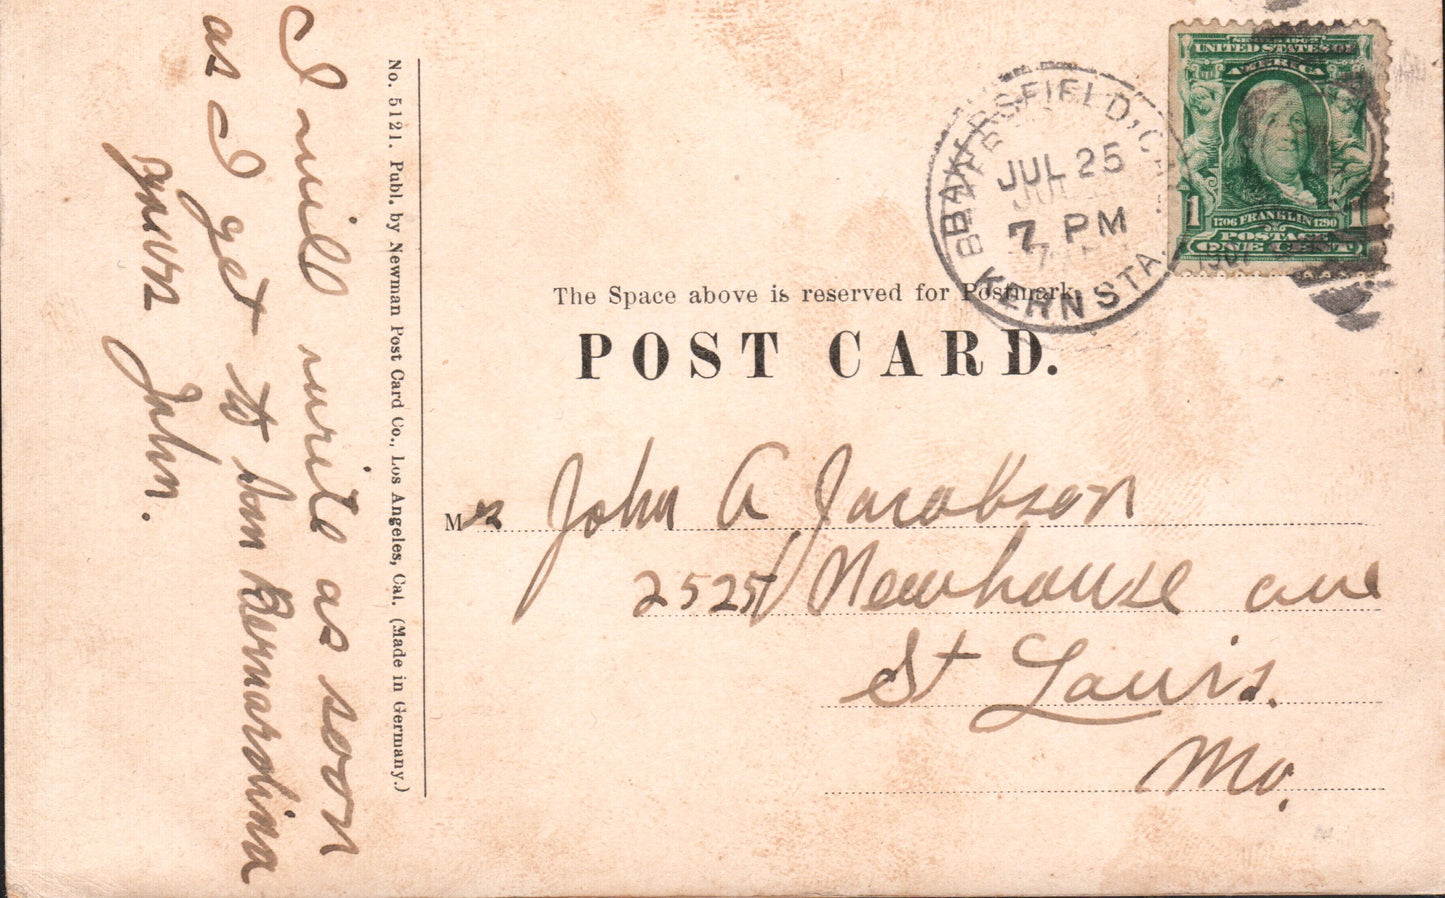 I will write as soon
as I get to San Bernardina
yours
John.
No. 5121. Publ. by Newman Post Card Co., Los Angeles, Cal. (Made in Germany.)
SERIES 1902
UNITED STATES OF
AMERICA
1 1706 FRANKLIN 1790 1
POSTAGE
ONE CENT
BAKERSFIELD, CAL
JUL 25
7 PM
KERN STA.
1907
The Space above is reserved for Postmark.
POST CARD.
Mrs John A Jacobson
2525 Newhouse ave
St Louis.
Mo.